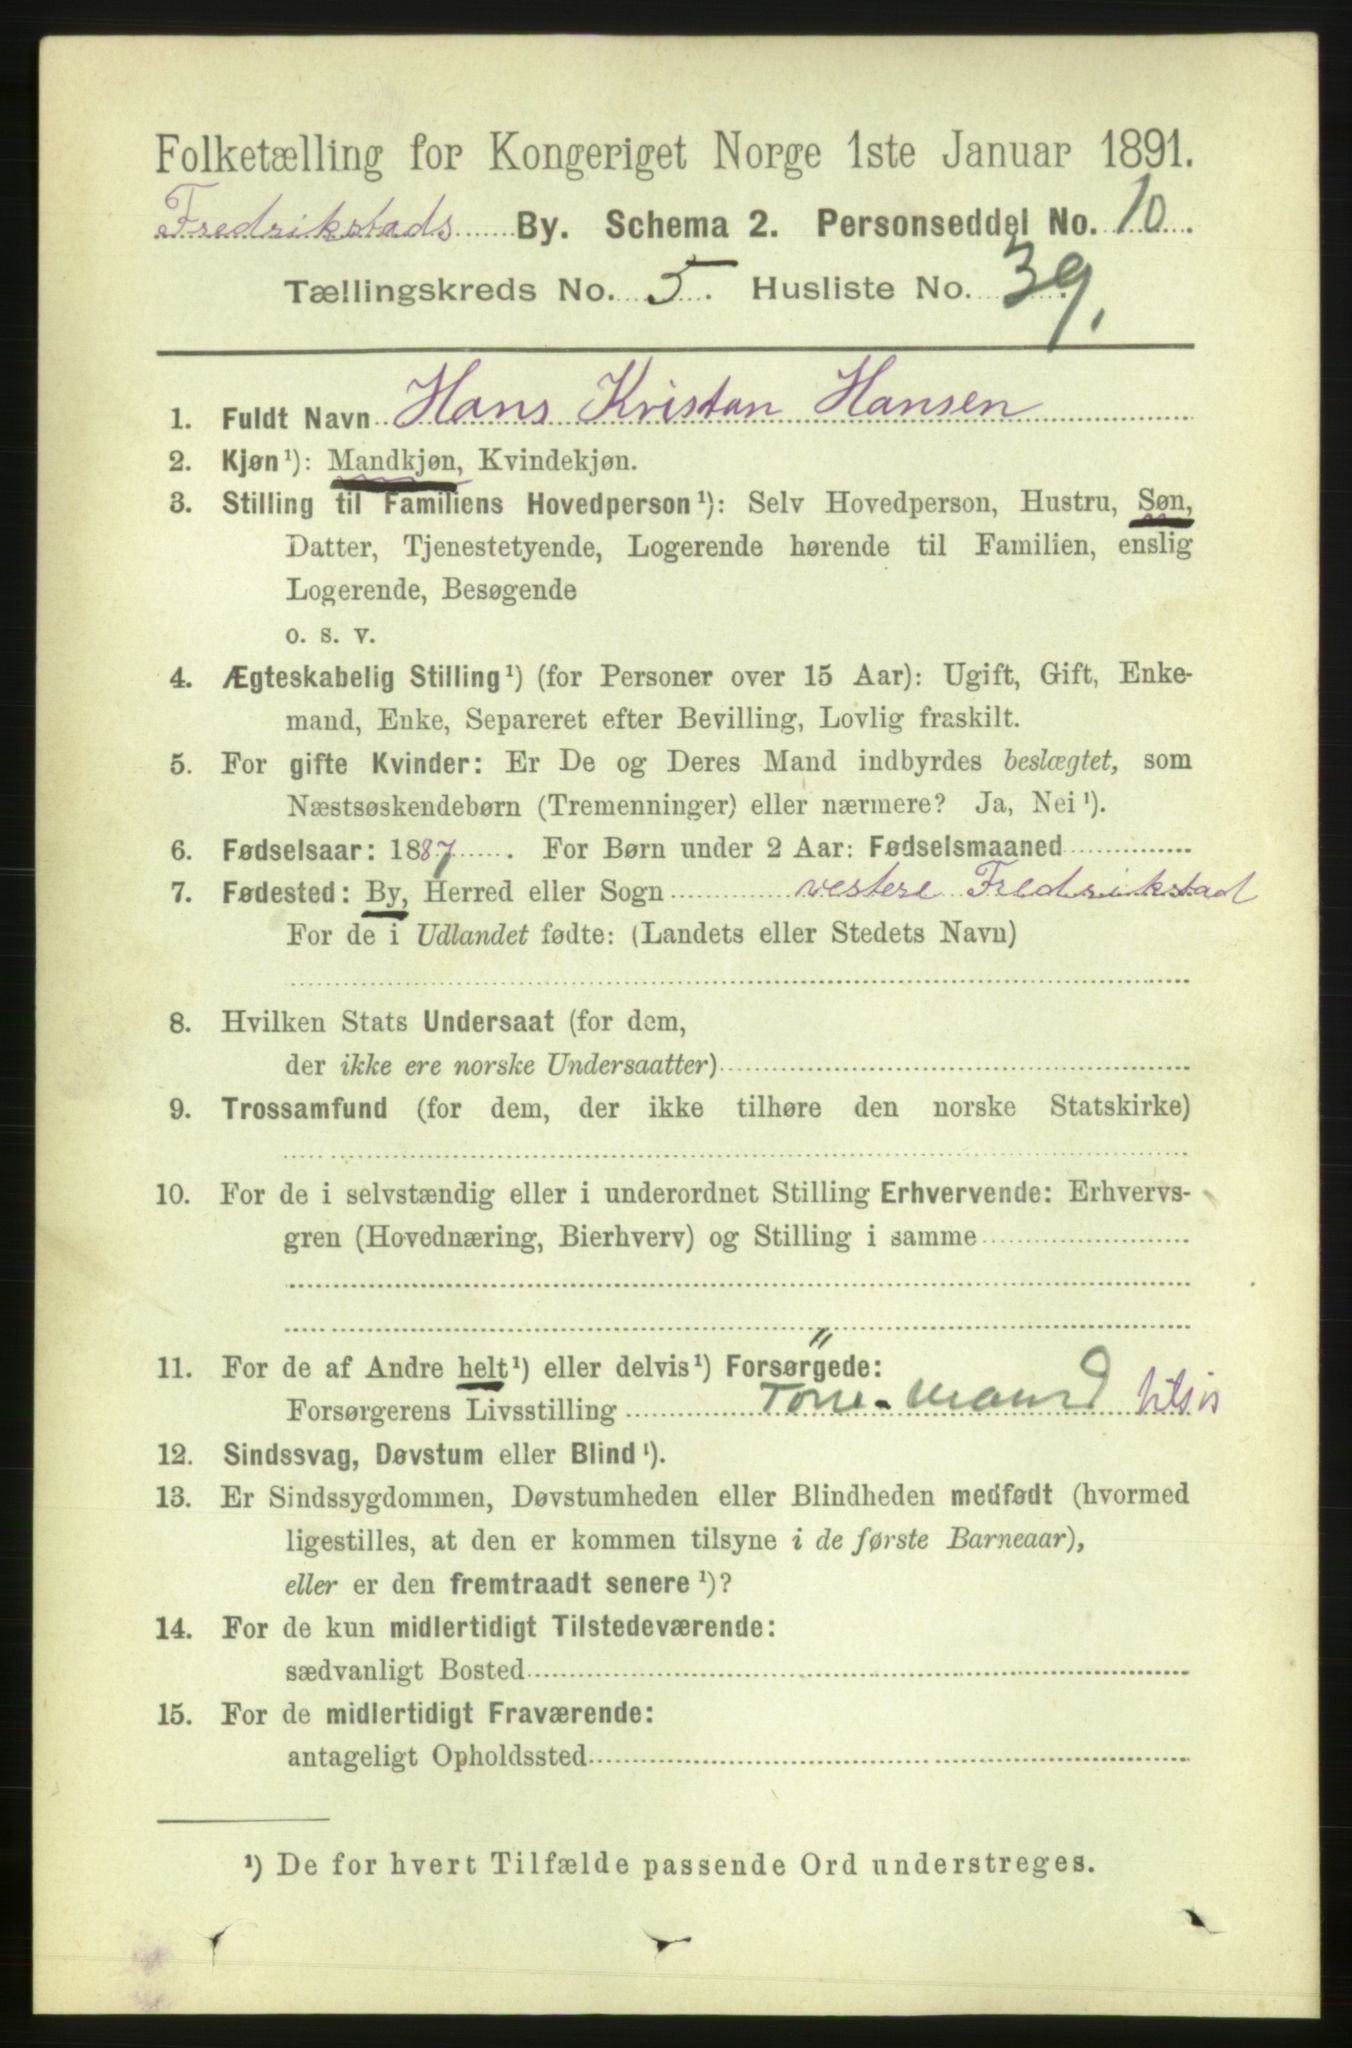 Folketælling for Kongeriget Norge 1ste Januar 1891.
Fredrikstads By. Schema 2. Personseddel No. 10.
Tællingskreds No. 5. Husliste No. 39.
1. Fuldt Navn Hans Kristan Hansen
2. Kjøn¹): Mandkjøn, Kvindekjøn.
3. Stilling til Familiens Hovedperson¹): Selv Hovedperson, Hustru, Søn,
Datter, Tjenestetyende, Logerende hørende til Familien, enslig
Logerende, Besøgende
o. s. v.
4. Ægteskabelig Stilling¹) (for Personer over 15 Aar): Ugift, Gift, Enke-
mand, Enke, Separeret efter Bevilling, Lovlig fraskilt.
5. For gifte Kvinder: Er De og Deres Mand indbyrdes beslægtet, som
Næstsøskendebørn (Tremenninger) eller nærmere? Ja, Nei¹).
6. Fødselsaar: 1887. For Børn under 2 Aar: Fødselsmaaned
7. Fødested: By, Herred eller Sogn vestere Fredrikstad
For de i Udlandet fødte: (Landets eller Stedets Navn)
8. Hvilken Stats Undersaat (for dem,
der ikke ere norske Undersaatter)
9. Trossamfund (for dem, der ikke tilhøre den norske Statskirke)
10. For de i selvstændig eller i underordnet Stilling Erhvervende: Erhvervs-
gren (Hovednæring, Bierhverv) og Stilling i samme
"
11. For de af Andre helt¹) eller delvis¹) Forsørgede:
Forsørgerens Livsstilling
12. Sindssvag, Døvstum eller Blind¹).
13. Er Sindssygdommen, Døvstumheden eller Blindheden medfødt (hvormed
ligestilles, at den er kommen tilsyne i de første Barneaar),
eller er den fremtraadt senere¹)?
14. For de kun midlertidigt Tilstedeværende:
sædvanligt Bosted
15. For de midlertidigt Fraværende:
antageligt Opholdssted
¹) De for hvert Tilfælde passende Ord understreges.